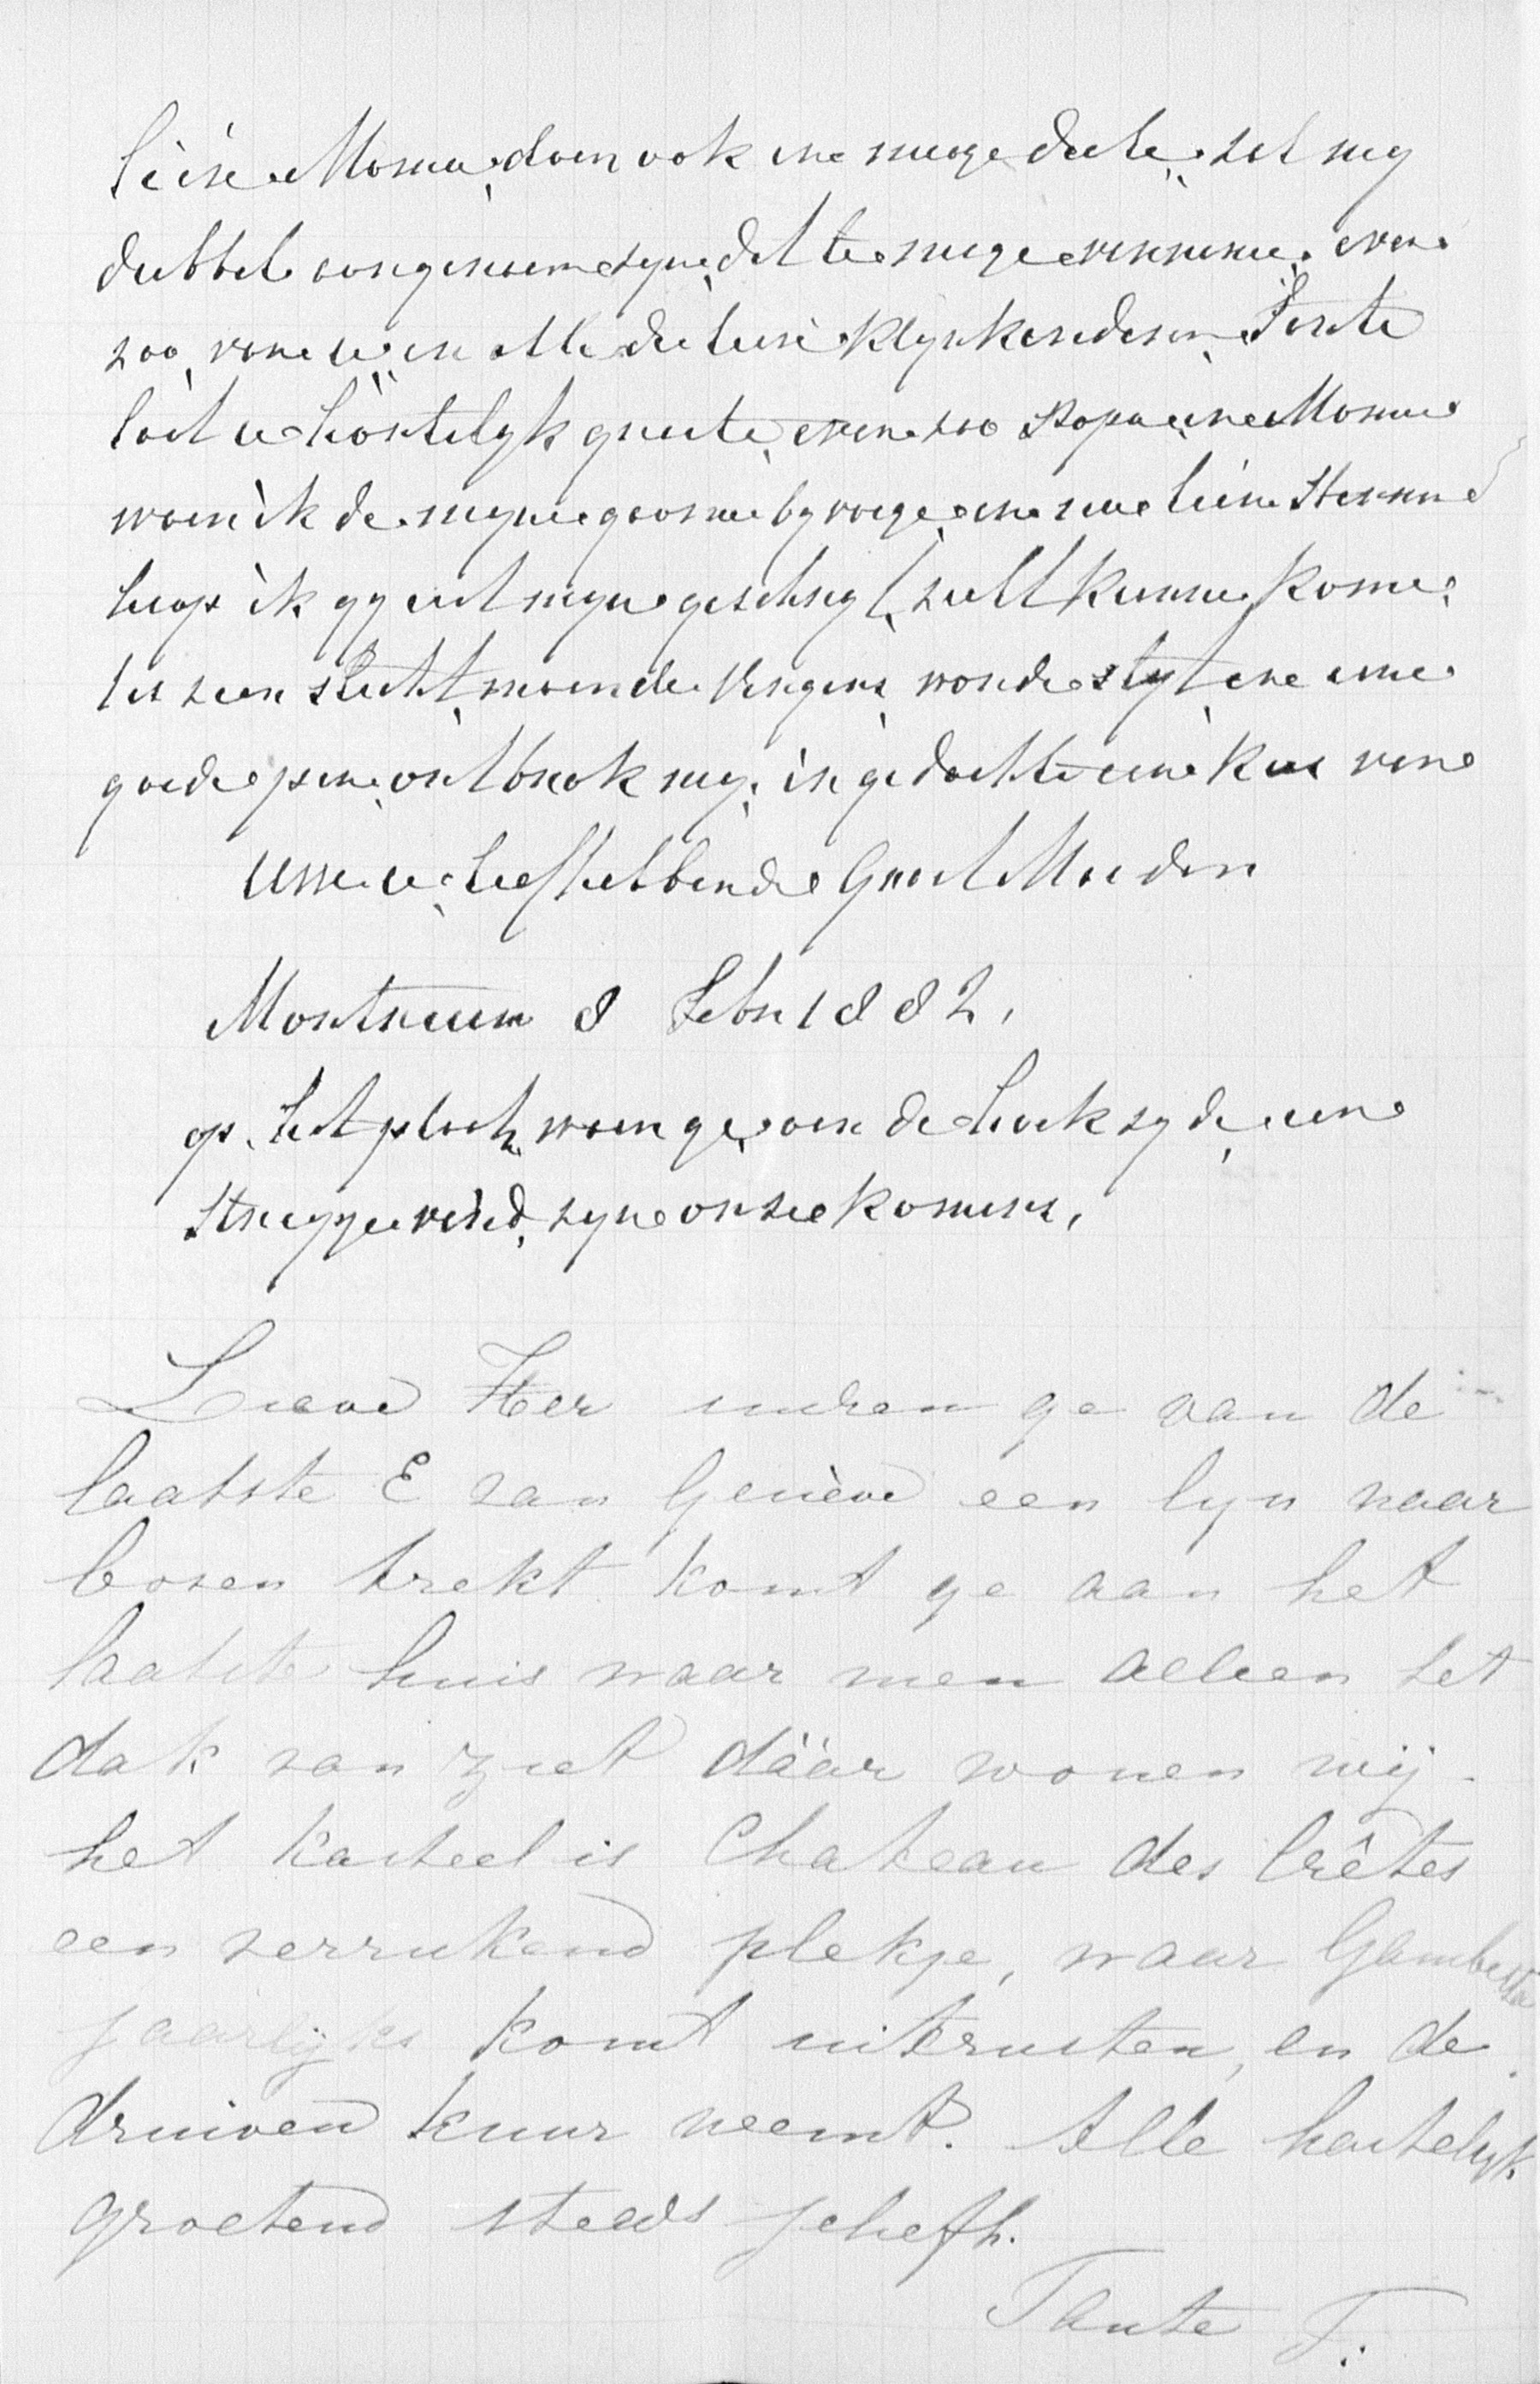 lieve Mama, daar ook in mage deele, zal my
dubbel aangenaam zyn, dat te mage verneme, even
zoo van u, en alle die lieve klynkendere Tante
laat u hartelyk groete, even zoo Papa en Mama
waar ik de myne gaarne by voege en nu lieve Herman
hoop ik gy uit myn geschryf, zult kunne kome,
het zeer slecht, maar de vingers worde styf, en eene
goede pen, ontbrak my, in gedachte eene kus van
Uwe u, liefhebbende Groot Moeder
Montreux 8 Febr 1882,
op het plaatz waar ge, aan de hoek zyde, een
streepje vind, zyn onze kamers,
Lieve Her indien ge van de
laatste E van Genève een lyn naar
boven trekt komt ge aan het
laatste huis waar men alleen het
dak van ziet däär wonen wij.
het kasteel is Chateau des Crêtes
een verrukend plekje, waar Gambetta
jaarlijks komt uitrusten, en de
druiven kuur neemt. Alle hartelyk
groetend steeds je liefh.
Tante F.